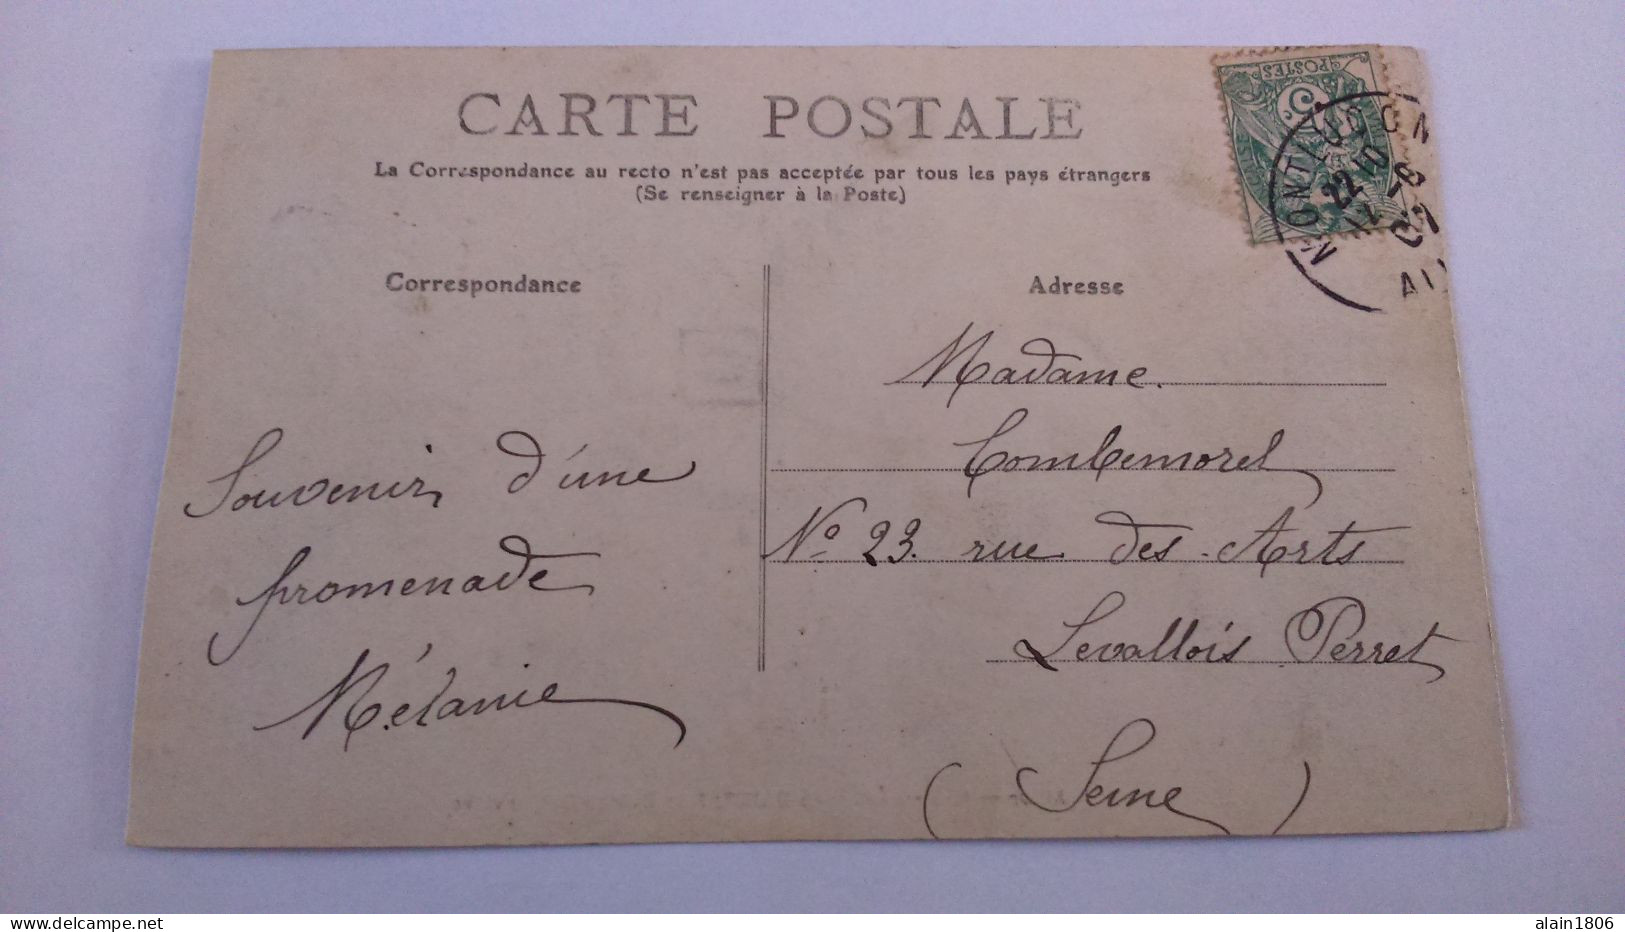 CARTE POSTALE
La Correspondance au recto n'est pas acceptée par tous les pays étrangers
(Se renseigner à la Poste)
POSTES
5
MONTLUÇON
22 10
07
Correspondance
Adresse
Souvenir d'une
promenade
Mélanie
Madame.
Combemorel
No 23. rue des Arts
Levallois Perret
(Seine)
delcampe.net
alain1806